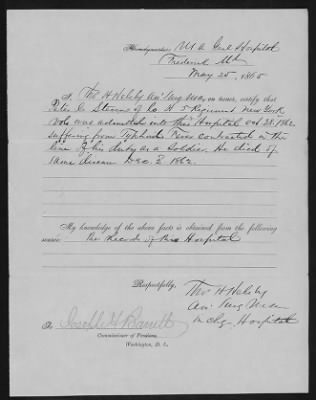 Headquarters, U.S. Genl Hospital
Frederick Md
May 25, 1865
I, Tho H Helsby Act Surg USA, on honor, certify that
Peter C Stevens of Co H 5 Regiment New York
Vols was admitted into this Hospital Oct 28, 1862
suffering from Typhoid Fever contracted in the
line of his duty as a Soldier. He died of
same disease Dec. 2 1862.
My knowledge of the above facts is obtained from the following
source: The Records of this Hospital
Respectfully,
Tho H Helsby
Act Surg USA
in chg. Hospital
To Joseph H Barrett
Commissioner of Pensions,
Washington, D. C.